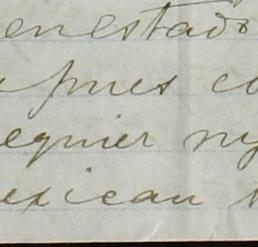 enestad
pues co
equier ny
exican